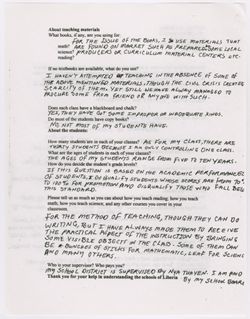 About teaching materials
What books, if any, are you using for:
FOR THE ISSUE OF THE BOOKS, I USE MATERIALS THAT
math? ARE FOUND ON MARKET SUCH AS PREPARED LOCAL
science? PRODUCERS OR CURRICULUM MATERIAL CENTERS etc.
reading?
If no textbooks are available, what do you use?
I HAVEN'T ATTEMPTED TEACHING IN THE ABSENCE OF SOME OF
THE ABOVE MENTIONED MATERIALS, THOUGH THE CIVIL CRISIS CREATED
SCARCITY OF THEM, YET STILL WE HAVE ALWAYS MANAGED TO
PROCURE SOME FROM FRIEND OR ANYONE WITH SUCH.
Does each class have a blackboard and chalk?
YES, THEY HAVE GOT SOME IMPROPER OR HARDBOARD KINDS.
Do most of the students have copy books?
NO, NOT MOST OF MY STUDENTS HAVE.
About the students:
How many students are in each of your classes? AS FOR MY CLASS, THERE ARE
FORTY STUDENTS BECAUSE I AM ONLY CONTROLLING ONE CLASS.
What are the ages of students in each of your classes?
THE AGES OF MY STUDENTS RANGE FROM FIVE TO TEN YEARS.
How do you decide the student's grade levels?
IF THIS QUESTION IS BASED ON THE ACADEMIC PERFORMANCES
OF STUDENTS, I DO QUALIFY STUDENTS WHOSE SCORES ARE FROM 70%
TO 100% FOR PROMOTION AND DISQUALIFY THOSE WHO FALL BELOW
THIS STANDARD.
Please tell us as much as you can about how you teach reading, how you teach
math, how you teach science, and any other courses you cover in your
classroom.
FOR THE METHOD OF TEACHING, THOUGH THEY CAN DO
WRITING, BUT I HAVE ALWAYS MADE THEM TO RECEIVE
THE PRACTICAL ASPECT OF THE INSTRUCTION BY BRINGING
SOME VISIBLE OBJECTS IN THE CLASS. SOME OF THEM CAN
BE A BUNDLES OF STICKS FOR MATHEMATIC, LEAF FOR SCIENCE
AND MANY OTHERS.
Who is your supervisor? Who pays you?
MY SCHOOL DISTRICT IS SUPERVISED BY I AM PAID
Thank you for your help in understanding the schools of Liberia BY MY SCHOOL BOARD